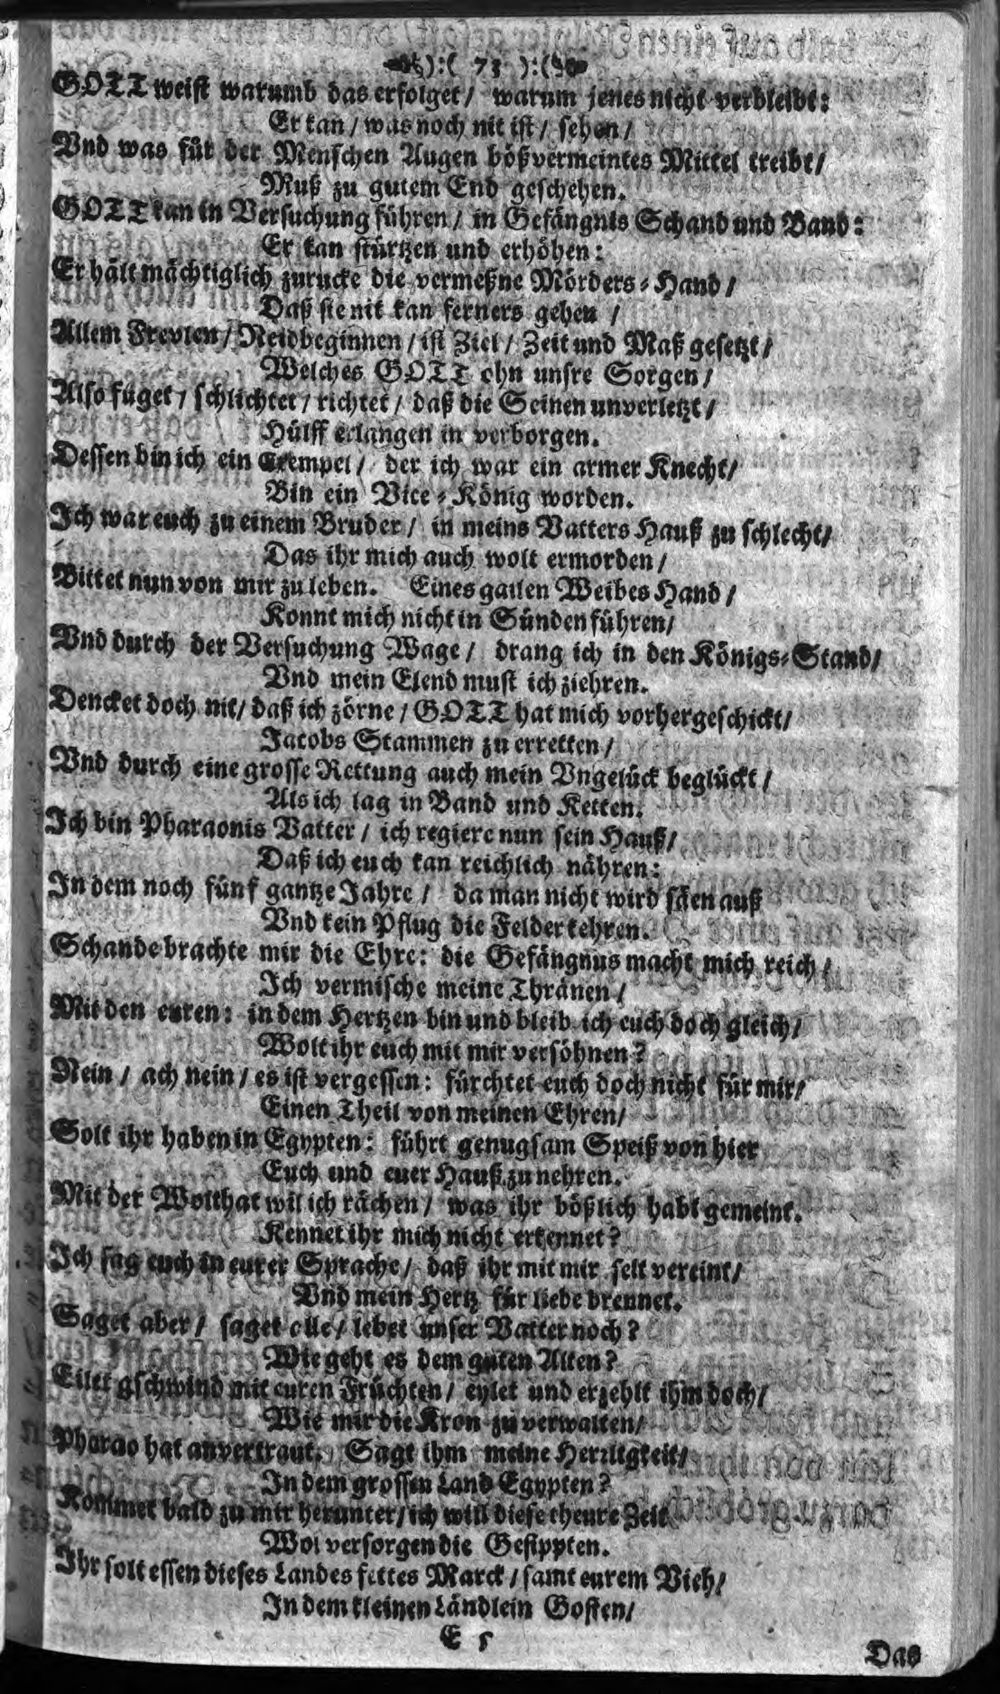 ):( 73 ):(
GOTT weist warumb das erfolget/ warum jenes nicht verbleibt:
Er kan/ was noch nit ist/ sehen/
Vnd was für der Menschen Augen bößvermeintes Mittel treibt/
Muß zu gutem End geschehen.
GOTT kan in Versuchung führen/ in Gefängnis Schand und Band:
Er kan stürtzen und erhöhen:
Er hält mächtiglich zurucke die vermeßne Mörders-Hand/
Daß sie nit kan ferners gehen/
Allem Frevlen/ Neidbeginnen/ ist Ziel/ Zeit und Maß gesetzt/
Welches GOTT ohn unsre Sorgen/
Also füget/ schlichtet/ richtet/ daß die Seinen unverletzt/
Hülff erlangen in verborgen.
Dessen bin ich ein Exempel/ der ich war ein armer Knecht/
Bin ein Vice-König worden.
Ich war euch zu einem Bruder/ in meins Vatters Hauß zu schlecht/
Das ihr mich auch wolt ermorden/
Bittet nun von mir zu leben. Eines gailen Weibes Hand/
Konnt mich nicht in Sünden führen/
Vnd durch der Versuchung Wage/ drang ich in den Königs-Stand/
Vnd mein Elend must ich ziehren.
Dencket doch nit/ daß ich zörne/ GOTT hat mich vorhergeschickt/
Jacobs Stammen zu erretten/
Vnd durch eine grosse Rettung auch mein Vngelück beglückt/
Als ich lag in Band und Ketten.
Ich bin Pharaonis Vatter/ ich regiere nun sein Hauß/
Daß ich euch kan reichlich nähren:
In dem noch fünf gantze Jahre/ da man nicht wird säen auß
Vnd kein Pflug die Felder kehren.
Schande brachte mir die Ehre: die Gefängnus macht mich reich/
Ich vermische meine Thränen/
Mit den euren: in dem Hertzen bin und bleib ich euch doch gleich/
Wolt ihr euch mit mir versöhnen?
Nein/ ach nein/ es ist vergessen: fürchtet euch doch nicht für mir/
Einen Theil von meinen Ehren/
Solt ihr haben in Egypten: führt genugsam Speiß von hier
Euch und euer Hauß zu nehren.
Mit der Wolthat wil ich rächen/ was ihr bößlich habt gemeint.
Kennet ihr mich nicht erkennet?
Ich sag euch in eurer Sprache/ daß ihr mit mir selt vereint/
Vnd mein Hertz für liebe brennet.
Saget aber/ saget elle/ lebet unser Vatter noch?
Wie geht es dem guten Alten?
Eilet gschwind mit euren Früchten/ eylet und erzehlt ihm doch/
Wie mir die Kron zu verwalten/
Pharao hat anvertraut. Sagt ihm meine Herzligkeit/
In dem grossen Land Egypten?
Kommet bald zu mir herunter/ ich will diese theure Zeit
Wol versorgen die Gesippten.
Ihr solt essen dieses Landes fettes Marck/ samt eurem Vieh/
In dem kleinen Ländlein Gosen/
E 5
Das